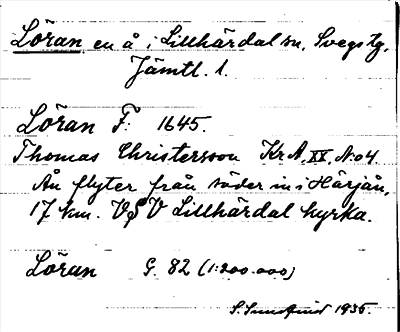 Löran, en å i Lillhärdal sn, Svegs tg,
Jämtl. l.
Löran F: 1645.
Thomas Christersson Kr A, XX, N:o 4.
Ån flyter från söder in i Härjån,
17 km. VSV Lillhärdal kyrka.
Löran G. 82 (1:200.000)
S. Sundqvist 1935.